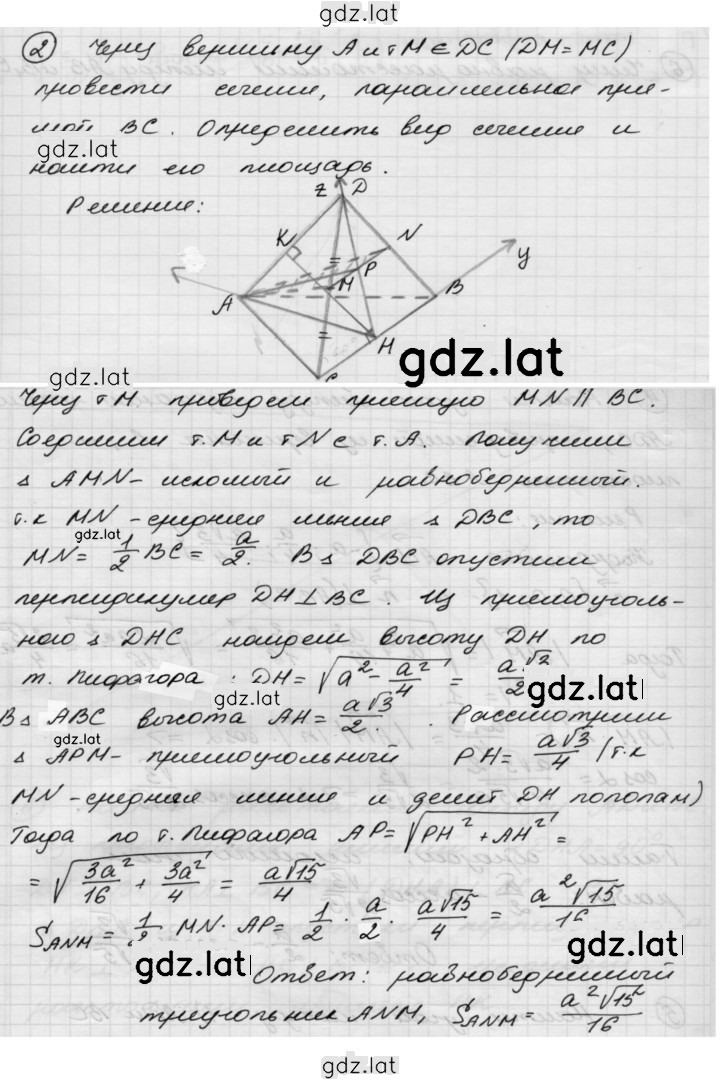 gdz.lat
② Через вершину A и т M ∈ DC (DM = MC)
провести сечение, параллельное пря-
мой BC. Определить вид сечения и
gdz.lat
найти его площадь.
Решение:
z D
K N
P y
M B
A
H
C
gdz.lat
gdz.lat
Через т M проведем прямую MN || BC.
Соединим т. M и т N с т. A. Получим
△ AMN - искомый и равнобедренный.
т.к MN - средняя линия △ DBC, то
gdz.lat
MN = 1/2 BC = a/2. В △ DBC опустим
перпендикуляр DH ⊥ BC. Из прямоуголь-
ного △ DHC найдем высоту DH по
т. Пифагора: DH = √(a² - a²/4) = a√2/2
gdz.lat
gdz.lat
В △ ABC высота AH = a√3/2. Рассмотрим
gdz.lat
△ APM - прямоугольный PH = a√3/4 (т.к
MN - средняя линия и делит DH пополам)
Тогда по т. Пифагора AP = √(PH² + AH²) =
= √(3a²/16 + 3a²/4) = a√15/4
S ANM = 1/2 MN · AP = 1/2 · a/2 · a√15/4 = a²√15/16
gdz.lat
gdz.lat
Ответ: равнобедренный
треугольник ANM, S ANM = a²√15/16
gdz.lat